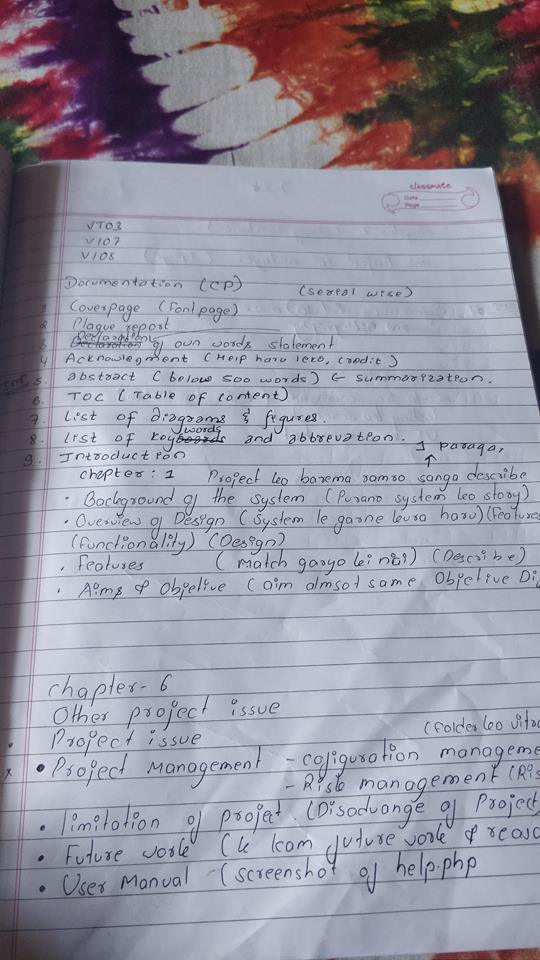 classmate
Date
Page
VT03
V107
V108
Documentation (CP) (Serial wise)
1 Coverpage (Fontpage)
2 Plague report
3 Declaration of own words statement
4 Acknowlegment (Help haru leko, credit)
5. abstract (below 500 words) ← summarization.
6. TOC (Table of content)
7. List of diagrams & figures.
8. List of keywords and abbrevation.
9. Introduction ↑ 1 paraga,
chapter: 1 Project ko barema ramro sanga describe
• Background of the system (Purano system ko story)
• Overview of Design (System le garne kura haru) (Features
(functionality) (Design)
• Features (Match garyo ki nai) (Describe)
• Aims & Objetive (aim almsot same Objective Di
chapter-6
Other project issue
• Project issue (folder ko
x • Project Management - cofiguration manageme
- Risk management (Ris
• limitation of project. (Disadvange of Project
• Future work (k kam future work & reaso
• User Manual - (screenshot of help.php